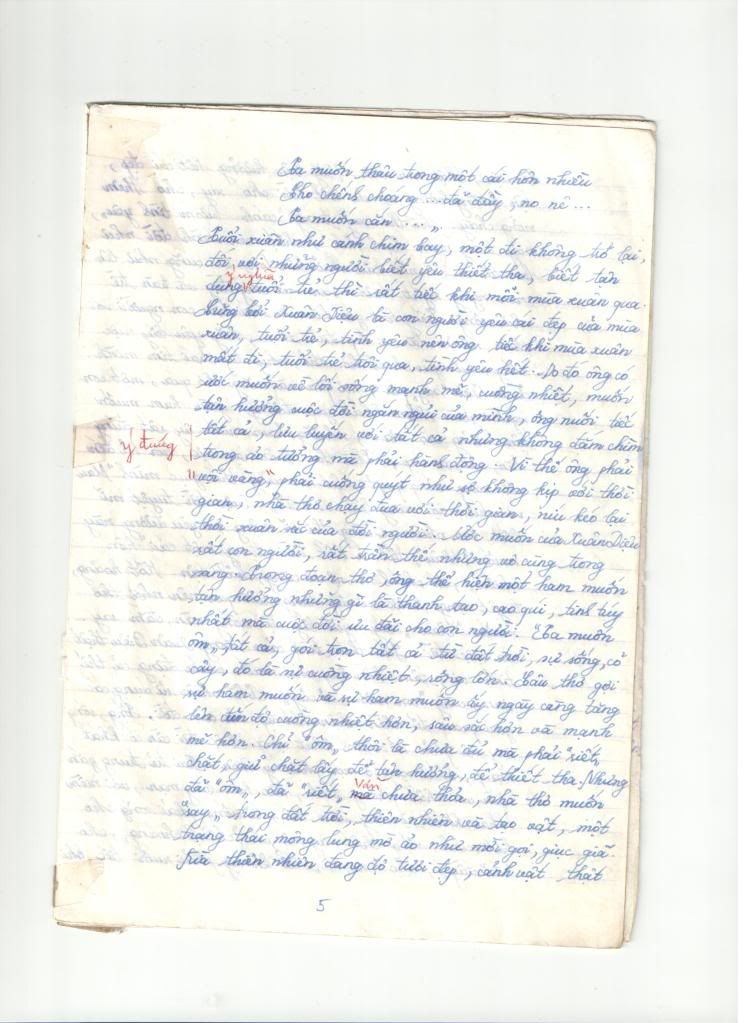 Ta muốn thâu trong một cái hôn nhiều
Cho chênh choáng ... đã đầy, no nê ...
Ta muốn cắn ....„
Tuổi xuân như cánh chim bay, một đi không trở lại,
đối với những người biết yêu thiết tha, biết tận
ý nghĩa
dụng tuổi trẻ thì rất tiếc khi mỗi mùa xuân qua.
Cũng bởi Xuân Diệu là con người yêu cái đẹp của mùa
xuân, tuổi trẻ, tình yêu nên ông tiếc khi mùa xuân
mất đi, tuổi trẻ trôi qua, tình yêu hết. Do đó ông có
ước muốn về lối sống mạnh mẽ, cuồng nhiệt, muốn
tận hưởng cuộc đời ngắn ngủi của mình, ông nuối tiếc
tất cả, lưu luyến với tất cả nhưng không đắm chìm
ý đúng
trong ảo tưởng mà phải hành động. Vì thế ông phải
"vội vàng" phải cuống quýt như sợ không kịp với thời
gian, nhà thơ chạy đua với thời gian, níu kéo lại
thời xuân sắc của đời người. Ước muốn của Xuân Diệu
rất con người, rất trần thế nhưng vô cùng trong
sáng. Trong đoạn thơ, ông thể hiện một ham muốn
tận hưởng những gì là thanh tao, cao quí, tinh túy
nhất mà cuộc đời ưu đãi cho con người. "Ta muốn
ôm„ tất cả, gói trọn tất cả từ đất trời, sự sống, cỏ
cây, đó là sự cuồng nhiệt, sống lớn. Câu thơ gợi
sự ham muốn và sự ham muốn ấy ngày càng tăng
lên đến độ cuồng nhiệt hơn, sâu sắc hơn và mạnh
mẽ hơn. Chỉ "ôm„ thôi là chưa đủ mà phải "riết„
chặt, giữ chặt lấy để tận hưởng, để thiết tha. Nhưng
Vẫn
đã "ôm„, đã "riết„ mà chưa thỏa, nhà thơ muốn
"say„ trong đất trời, thiên nhiên và tạo vật, một
trạng thái mông lung mờ ảo như mời gọi, giục giã.
Giữa thiên nhiên đang độ tươi đẹp, cảnh vật thật
5